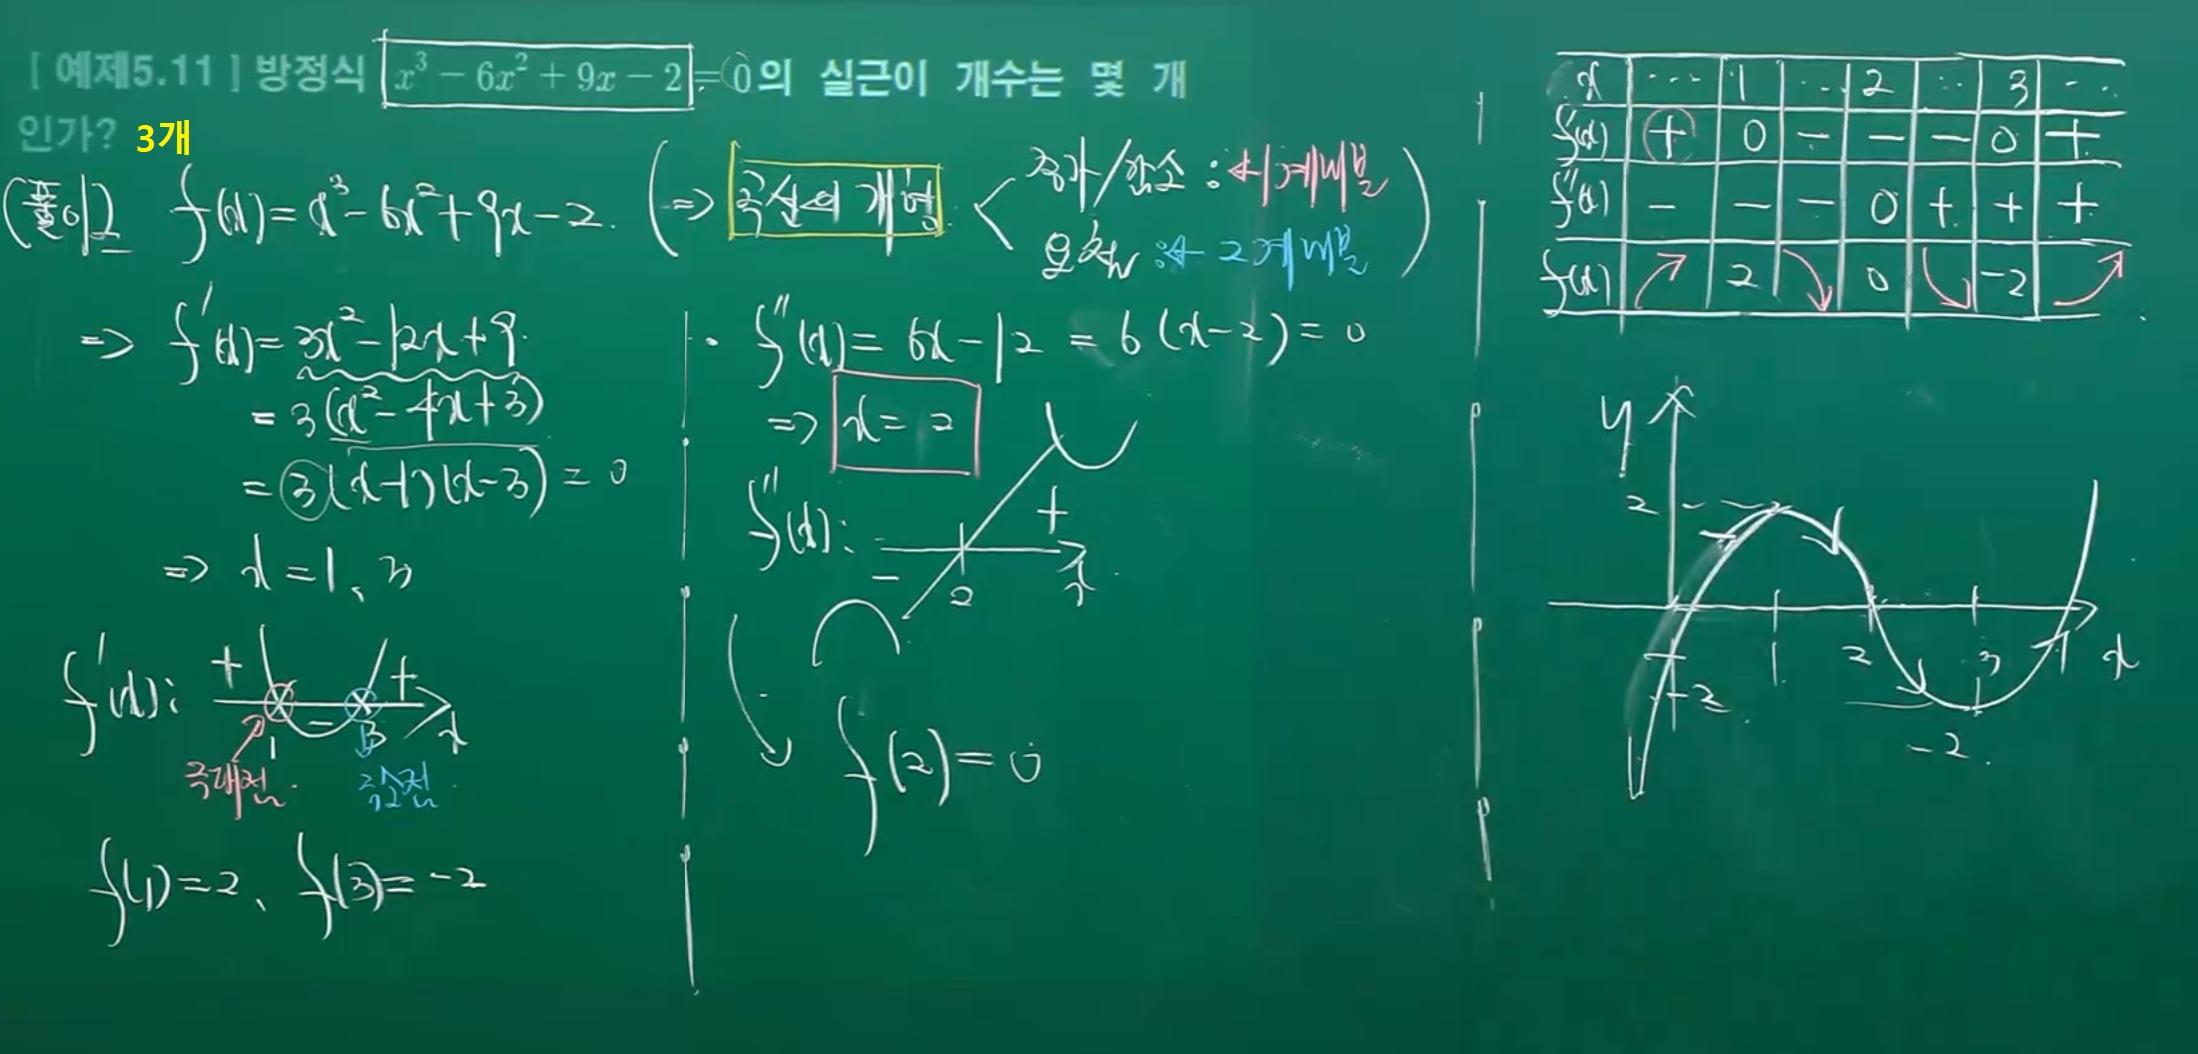 [ 예제5.11 ] 방정식 x³ − 6x² + 9x − 2 = 0의 실근이 개수는 몇 개
인가? 3개
(풀이) f(x) = x³ − 6x² + 9x − 2. ( ⇒ 곡선의 개형
증가/감소 : ← 1계미분
오목 : ← 2계미분 )
⇒ f'(x) = 3x² − 12x + 9.
= 3(x² − 4x + 3)
= 3(x−1)(x−3) = 0
⇒ x = 1, 3
f'(x) : + − + 1 3 x
극대점. 극소점.
f(1) = 2, f(3) = −2
· f''(x) = 6x − 12 = 6(x−2) = 0
⇒ x = 2
f''(x) : − + 2 x
f(2) = 0
x ··· 1 ··· 2 ·· 3 ···
f'(x) + 0 − − − 0 +
f''(x) − − − 0 + + +
f(x) ↗ 2 ↘ 0 ↘ −2 ↗
y
2
1 2 3 x
−2
−2